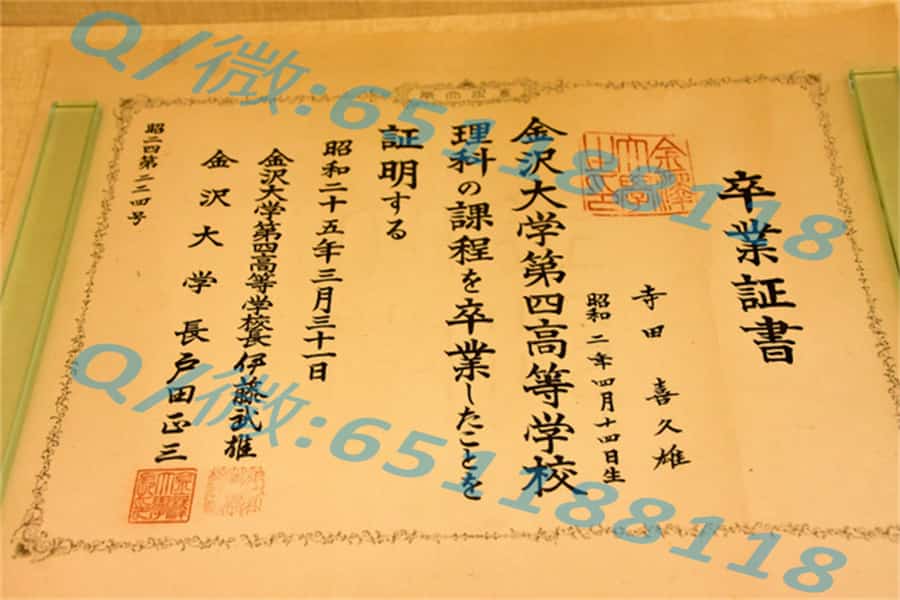 卒業証書
寺田 喜久雄
昭和二年四月十四日生
金沢大学第四高等学校
理科の課程を卒業したことを
証明する
昭和二十五年三月三十一日
金沢大学第四高等学校長 伊藤武雄
金沢大学長 戸田正三
昭二四第二二四号
Q/微:651188118
Q/微:651188118